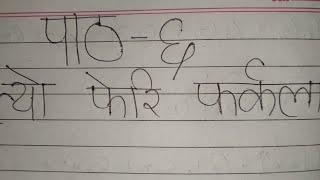 पाठ-६
त्यो फेरि फर्कला